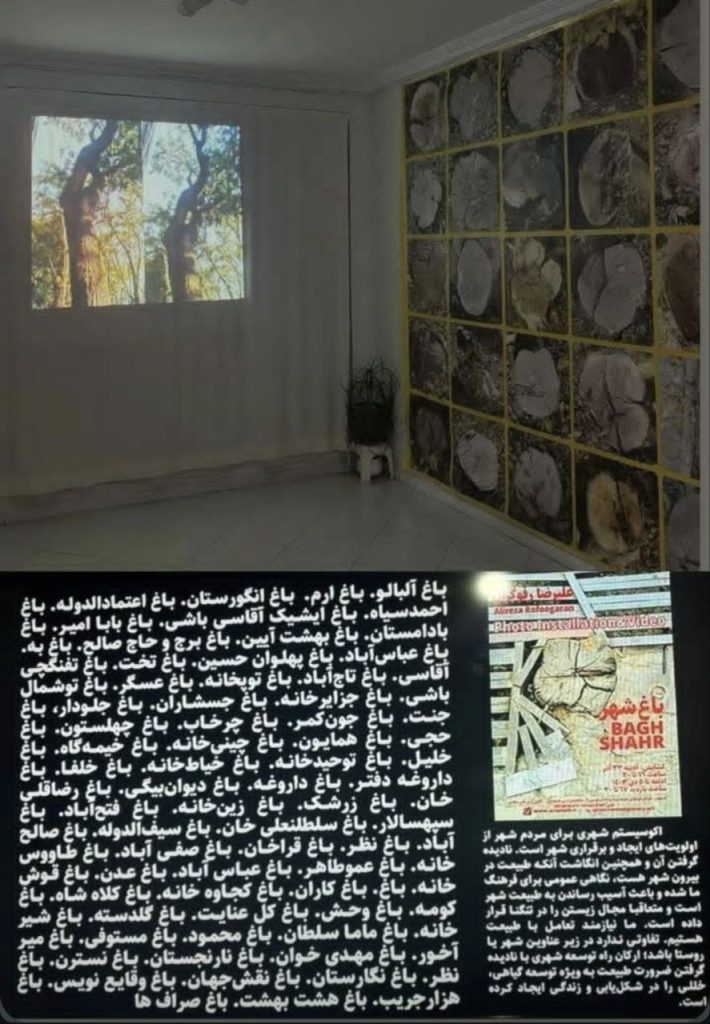 باغ آلبالو. باغ ارم. باغ انگورستان. باغ اعتمادالدوله. باغ
احمدسیاه. باغ ایشیک آقاسی باشی. باغ بابا امیر. باغ
بادامستان. باغ بهشت آیین. باغ برج و حاج صالح. باغ به.
باغ عباس‌آباد. باغ پهلوان حسین. باغ تخت. باغ تفنگچی
آقاسی. باغ تاج‌آباد. باغ توپخانه. باغ عسگر. باغ توشمال
باشی. باغ جزایرخانه. باغ جسشاران. باغ جلودار، باغ
جنت. باغ جون‌کمر. باغ چرخاب. باغ چهلستون. باغ
حجی. باغ همایون. باغ چینی‌خانه. باغ خیمه‌گاه. باغ
خلیل. باغ توحیدخانه. باغ خیاط‌خانه. باغ خلفا. باغ
داروغه دفتر. باغ داروغه. باغ دیوان‌بیگی. باغ رضاقلی
خان. باغ زرشک. باغ زین‌خانه. باغ فتح‌آباد. باغ
سپهسالار. باغ سلطلنعلی خان. باغ سیف‌الدوله. باغ صالح
آباد. باغ نظر. باغ قراخان. باغ صفی آباد. باغ طاووس
خانه. باغ عموطاهر. باغ عباس آباد. باغ عدن. باغ قوش
خانه. باغ. باغ کاران. باغ کجاوه خانه. باغ کلاه شاه. باغ
کومه. باغ وحش. باغ کل عنایت. باغ گلدسته. باغ شیر
خانه. باغ ماما سلطان. باغ محمود. باغ مستوفی. باغ میر
آخور. باغ مهدی خوان. باغ نارنجستان. باغ نسترن. باغ
نظر. باغ نگارستان. باغ نقش‌جهان. باغ وقایع نویس. باغ
هزارجریب. باغ هشت بهشت. باغ صراف ها
علیرضا رفوگران
Alireza Rofoogaran
Photo Installation&Video
باغ شهر
BAGH
SHAHR
اکوسیستم شهری برای مردم شهر از
اولویت‌های ایجاد و برقراری شهر است. نادیده
گرفتن آن و همچنین انگاشت آنکه طبیعت در
بیرون شهر هست، نگاهی عمومی برای فرهنگ
ما شده و باعث آسیب رساندن به طبیعت شهر
است و متعاقبا مجال زیستن را در تنگنا قرار
داده است. ما نیازمند تعامل با طبیعت
هستیم. تفاوتی ندارد در زیر عناوین شهر یا
روستا باشد؛ ارکان راه توسعه شهری با نادیده
گرفتن ضرورت طبیعت به ویژه توسعه گیاهی،
خللی را در شکل‌یابی و زندگی ایجاد کرده
است.